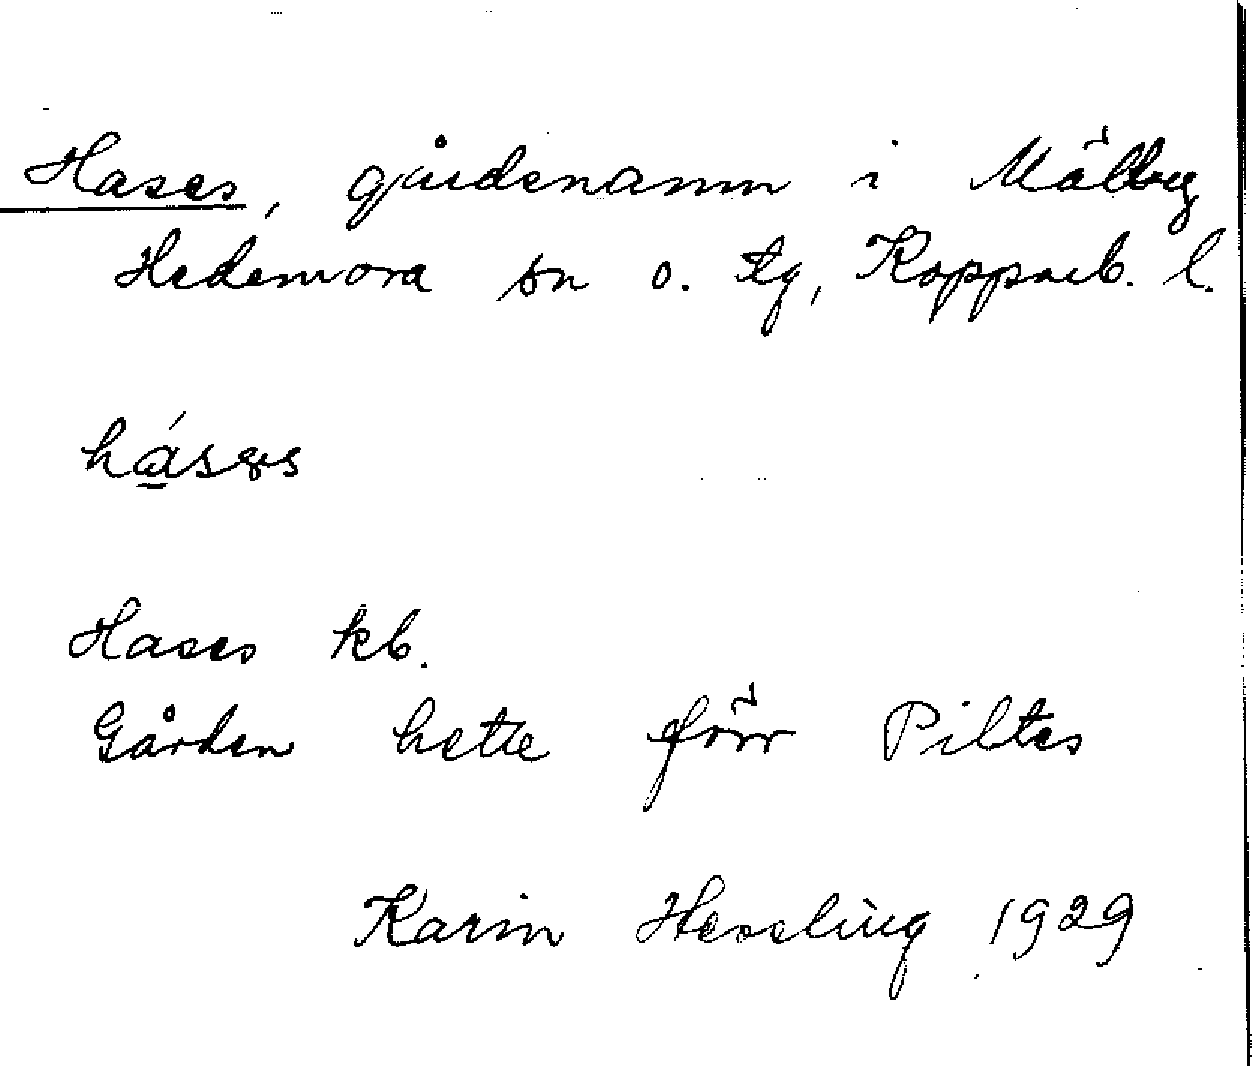 Hases, gårdsnamn i Mälby
Hedemora sn o. tg, Kopparb. l.
Hases kb.
Gården hette förr Piltes
Karin Hessling 1929